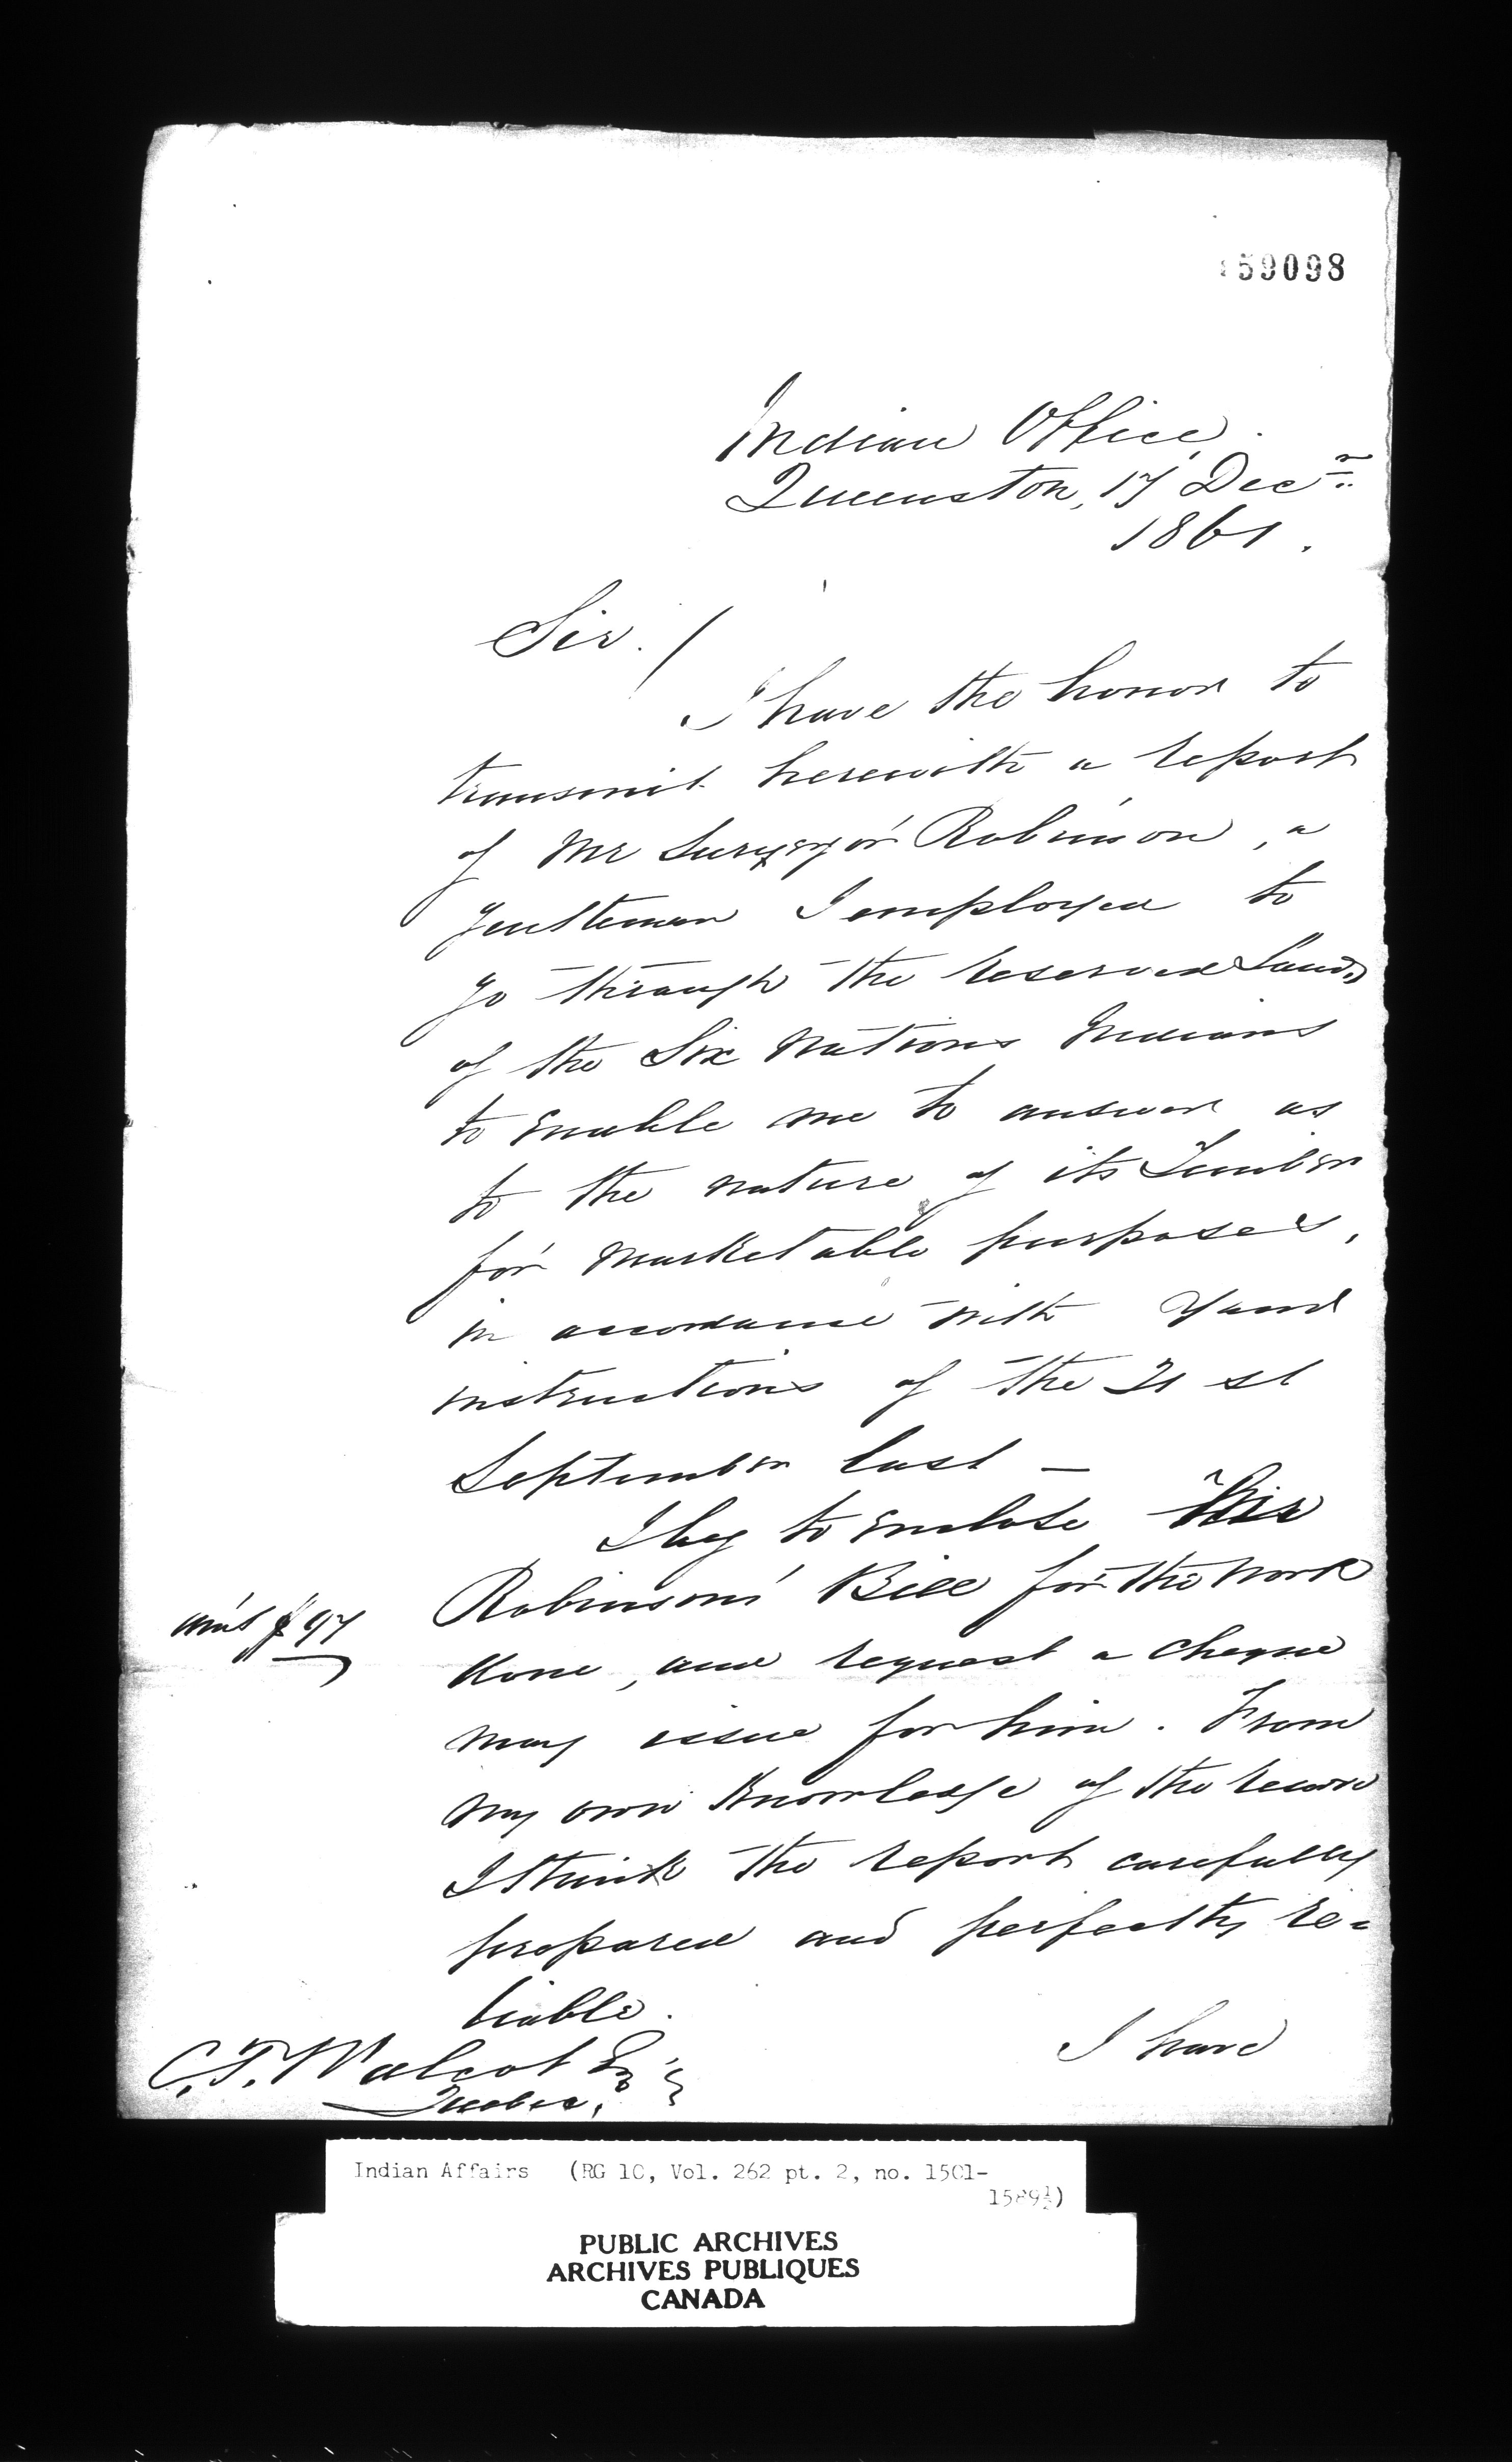 159098
Indian Office.
Queenston, 17 Decr
1861.
Sir. /
I have the honor to
transmit herewith a report
of Mr Surveyor Robinson, a
gentleman I employed to
go through the reserved Lands
of the Six Nations Indians
to enable me to answer as
to the nature of its Timber
for marketable purposes,
in accordance with Your
instructions of the 21 st
September last —
I beg to enclose
Robinson's Bill for the work
amt $97
done, and request a cheque
may issue for him. From
my own knowledge of the reserve
I think the report carefully
prepared and perfectly re=
liable.
I have
C. T. Walcot Esq
Quebec.
Indian Affairs (RG 10, Vol. 262 pt. 2, no. 1501-
1589½)
PUBLIC ARCHIVES
ARCHIVES PUBLIQUES
CANADA